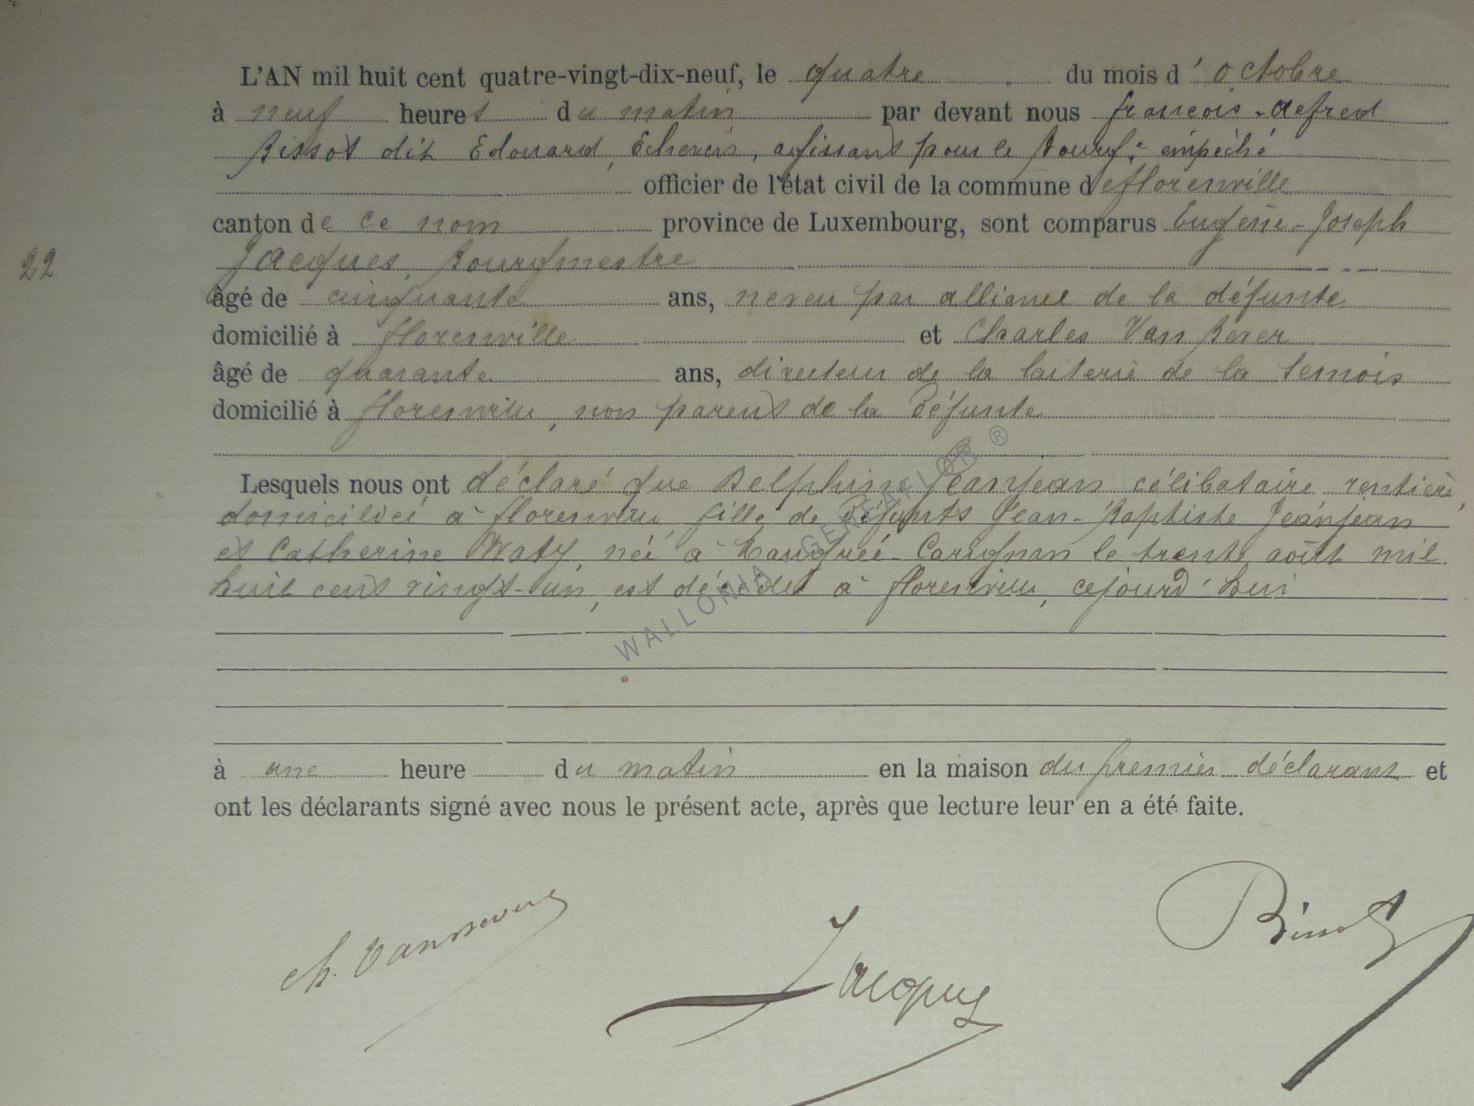 L'AN mil huit cent quatre-vingt-dix-neuf, le quatre du mois d'octobre
à neuf heures du matin par devant nous françois-Alfred
Bissot dit Edouard, Echevin, agissant pour le Bourgᵉ empêché
officier de l'état civil de la commune de florenville
canton de ce nom province de Luxembourg, sont comparus Eugène-Joseph
Jacques, Bourgmestre
22
âgé de cinquante ans, neveu par alliance de la défunte
domicilié à florenville et Charles Van
âgé de quarante ans, directeur de la laiterie de la Semois
domicilié à florenville, non parent de la Défunte
Lesquels nous ont déclaré que Delphine Jeanjean célibataire, rentière,
domiciliée à florenville, fille de Défunts Jean-Baptiste Jeanjean
et Catherine née à Carignan le trente août mil
huit cent vingt-un, est décédée à florenville, cejourd'hui
WALLONIA GENEAFLOR ®
à une heure du matin en la maison du premier déclarant et
ont les déclarants signé avec nous le présent acte, après que lecture leur en a été faite.
Ch.
Jacques
Bissot